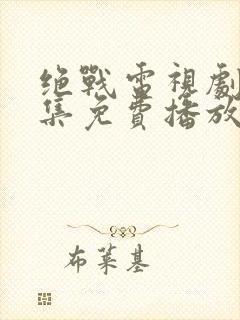 绝戰電視劇
集免費播放
布萊基